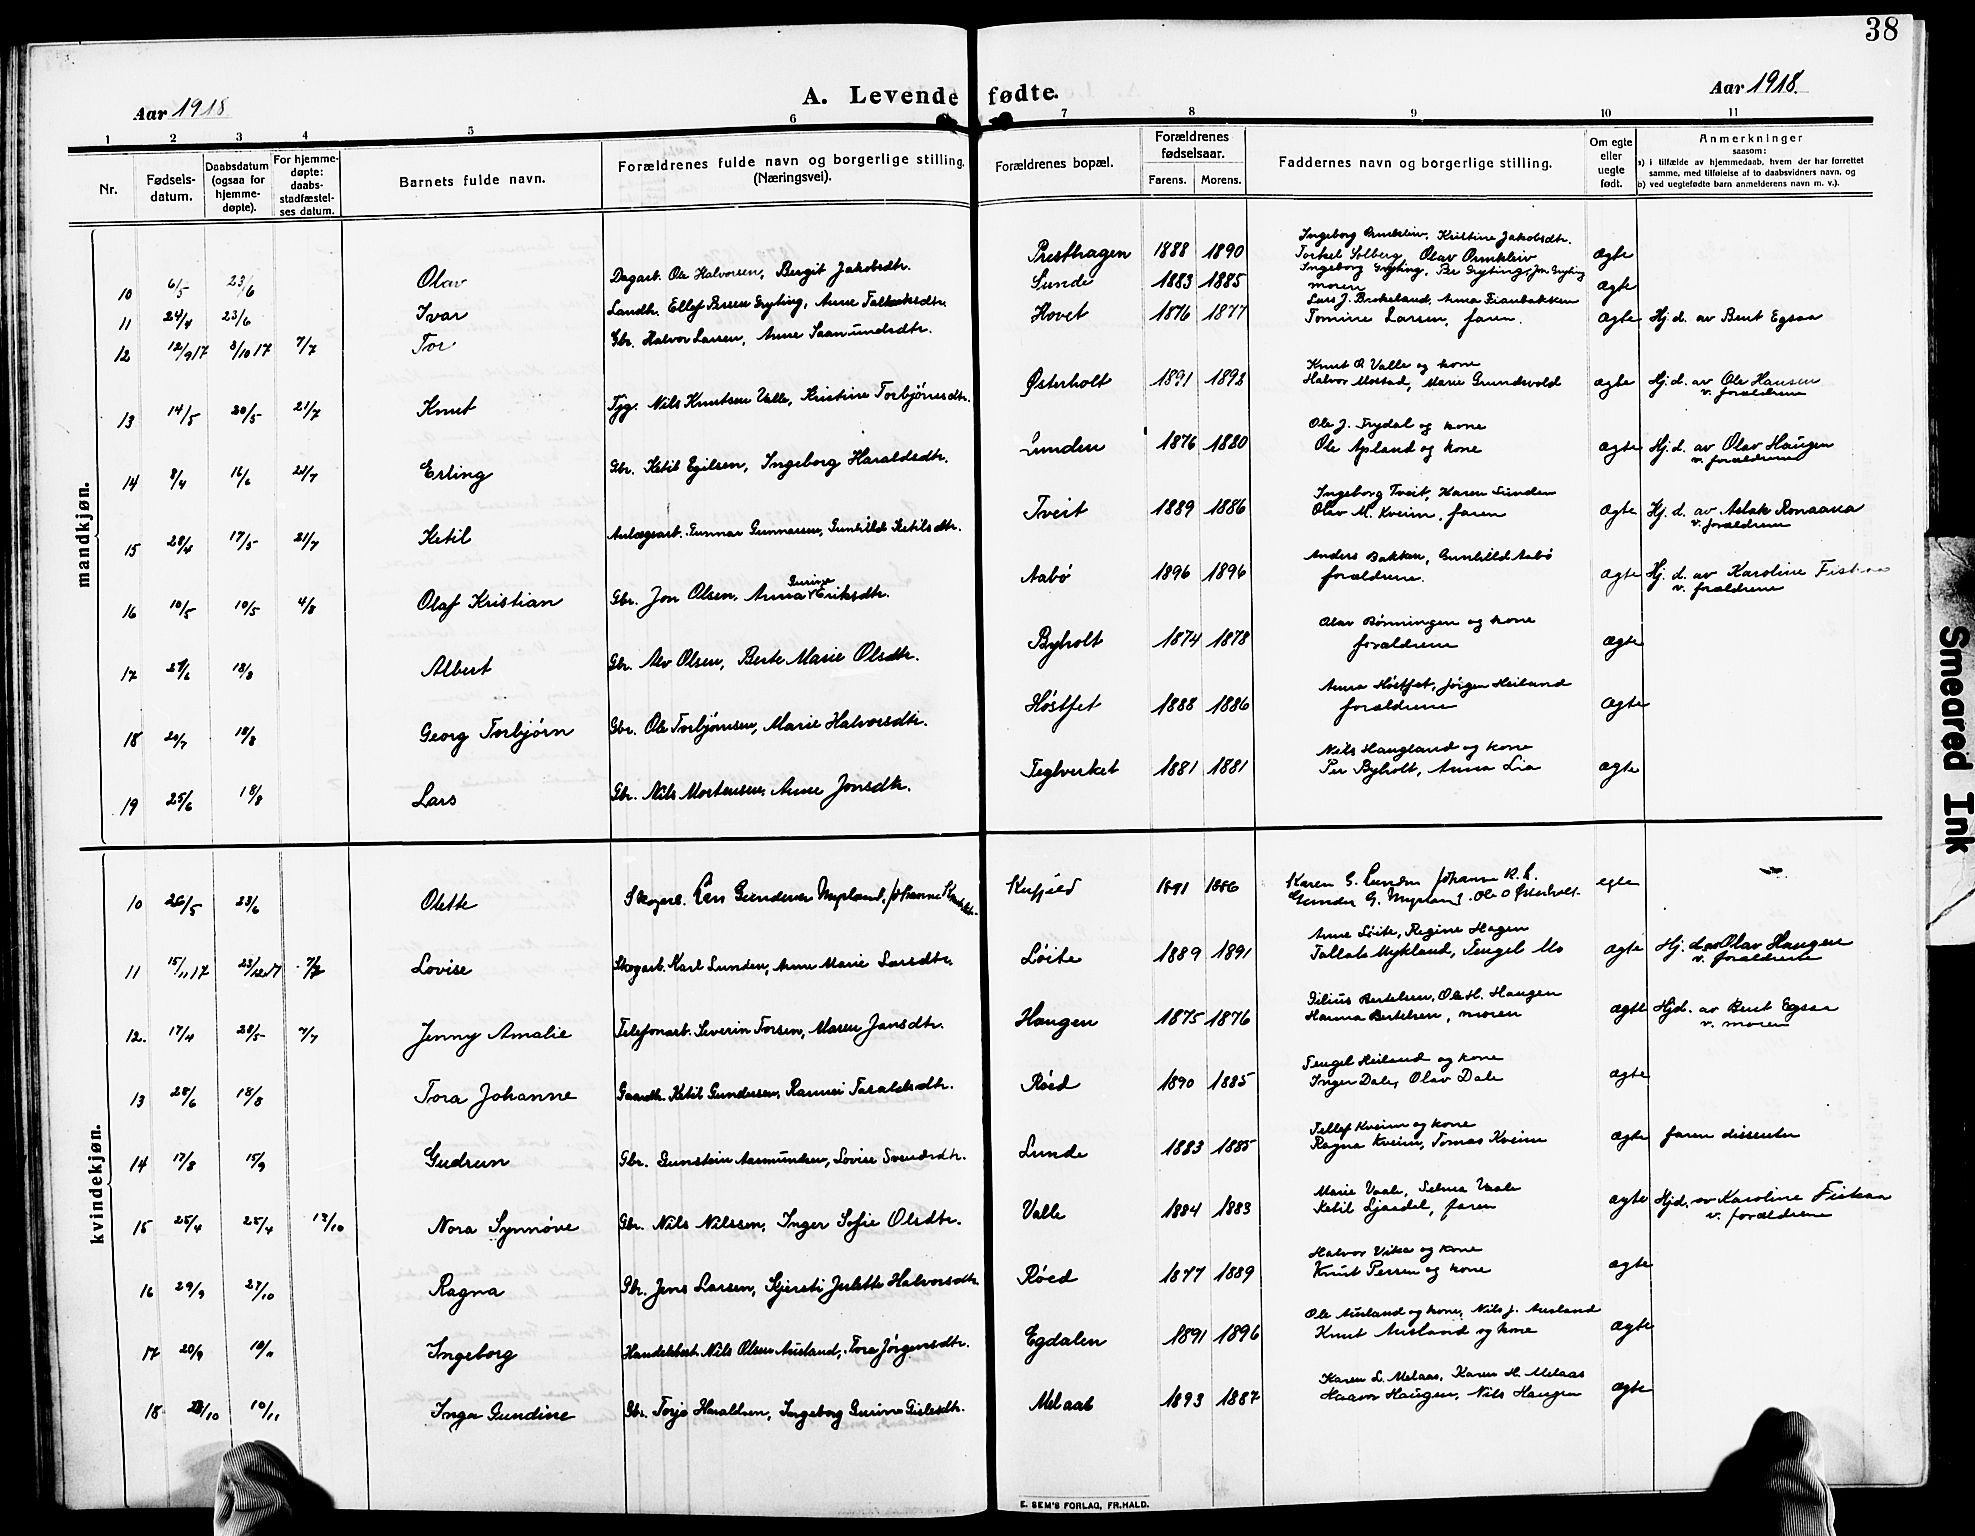 38
Aar 1918
A. Levende fødte.
Aar 1918.
1 2 3 4 5 6 7 8 9 10 11
Nr.
Fødsels-
datum.
Daabsdatum
(ogsaa for
hjemme-
døpte).
For hjemme-
døpte:
daabs-
stadfæstel-
ses datum.
Barnets fulde navn.
Forældrenes fulde navn og borgerlige stilling.
(Næringsvei).
Forældrenes bopæl.
Forældrenes
fødselsaar.
Farens. Morens.
Faddernes navn og borgerlige stilling.
Om egte
eller
uegte
født.
Anmerkninger
saasom:
a) i tilfælde av hjemmedaab, hvem der har forrettet
samme, med tilføielse av to daabsvidners navn, og
b) ved uegtefødte barn anmelderens navn m. v.).
mandkjøn.
10 6/5 23/6 Olav Dagarb. Ole Halvorsen, Bergit Jakobsdtr. Presthagen 1888 1890 Ingeborg Ormkleiv, Kristine Jakobsdtr.
Torkel Solberg Olav Ormkleiv ægte
11 24/4 23/6 Ivar Landh. Ellef Persen Gryting, Anne Tallaksdtr. Lunde 1883 1885 Ingeborg Gryting, Per Gryting, Jon Gryting
moren ægte
12 12/9 17 3/10 17 7/7 Tor Gbr. Halvor Larsen, Anne Saamundsdtr. Hovet 1876 1877 Lars J. Brekeland, Anna
Tomine Larsen, faren. ægte Hj. d. av Bent Egsaa
13 14/5 20/5 21/7 Knut Tjg. Nils Knutsen Valle, Kristine Torbjörnsdtr. Østerholt 1891 1892 Knut O. Valle og kone
Halvor Mostad, Marie Grundsvold ægte Hj. d. av Ole Hansen
v. forældrene
14 8/4 16/6 21/7 Erling Gbr. Ketil Egilsen, Ingeborg Haraldsdtr. Lunden 1876 1880 Ole J. Frydal og kone
Ole Apland og kone ægte Hj. d. av Olav Haugen
v. forældrene
15 28/4 17/5 21/7 Ketil Anlægsarb. Gunnar Gunnarsen, Gunhild Ketilsdtr. Tveit 1889 1886 Ingeborg Tveit, Karen Lunden
Olav M. Kveim, faren ægte Hj. d. av Aslak Ronaana
v. forældrene
16 10/5 10/5 4/8 Olaf Kristian Gbr. Jon Olsen, Anna Gurine Eriksdtr. Aabö 1896 1896 Anders Bakken, Gunhild Aabö
forældrene. ægte Hj. d. av Karoline
v. forældrene
17 27/6 18/8 Albert Gbr. Alv Olsen, Berte Marie Olsdtr. Byholt 1874 1878 Olav Bönningen og kone
forældrene ægte
18 20/7 18/8 Georg Torbjørn Gbr. Ole Torbjörnsen, Marie Halvorsdtr. Høstfet 1888 1886 Anna Høstfet, Jörgen Heiland
forældrene ægte
19 25/6 18/8 Lars Gbr. Nils Mortensen, Anne Jonsdtr. Teglverket 1881 1881 Nils Haugland og kone
Per Byholt, Anna Lia ægte
kvindekjøn.
10 26/5 23/6 Olette Skogarb. Lars Gundersen Myrland, Johanne 1891 1886 Karen G. Lunden Johanne K. L.
Gunder G. Myrland. Ole O Østerholt egte
11 15/11 17 23/12 17 7/7 Lovise Skogarb. Karl Lunden, Anne Marie Larsdtr. Löite 1889 1891 Anne Löite, Regine Hagen
Tallak Mykland, Tengel Mo ægte Hj. d. av Olav Haugen
v. forældrene
12. 17/4 28/5 7/7 Jenny Amalie Telefonarb. Severin Torsen, Maren Jansdtr. Haugen 1875 1876 Bertelsen, Ole H. Haugen
Hanna Bertelsen, moren ægte Hjd. av Bent Egsaa
v. moren
13 28/6 18/8 Tora Johanne Gaardbr. Ketil Gundersen, Rannei Taraldsdtr. Röed 1890 1885 Tengel Heiland og kone
Inger Dale, Olav Dale ægte
14 17/8 15/9 Gudrun Gbr. Gunstein Aasmundsen, Lovise Svendsdtr. Lunde 1883 1885 Tellef Kveim og kone
Ragna Kveim, Tomas Kveim ægte faren dissenter
15 25/4 25/4 13/10 Nora Synnöve Gbr. Nils Nilssen, Inger Sofie Olsdtr. Valle 1884 1883 Marie Vaale, Selma Vaale
Ketil Ljosdal, faren ægte Hjd. av Karoline
v. forældrene
16 29/9 27/10 Ragna Gbr. Jens Larsen, Kjersti Julette Halvorsdtr. Röed 1877 1889 Halvor Vika og kone
Knut Persen og kone ægte
17 20/9 10/11 Ingeborg Handelsbest. Nils Olsen Ausland, Tora Jörgensdtr. Egdalen 1891 1896 Ole Ausland og kone, Nils J. Ausland
Knut Ausland og kone ægte
18 28/10 10/11 Inga Gundine Gbr. Terje Haraldsen, Ingeborg Gurine Gislesdtr. Melaas 1893 1887 Karen L. Melaas, Karen H. Melaas
Haavor Haugen, Nils Haugen ægte
E. SEM'S FORLAG, FR.HALD.
Smeared Ink